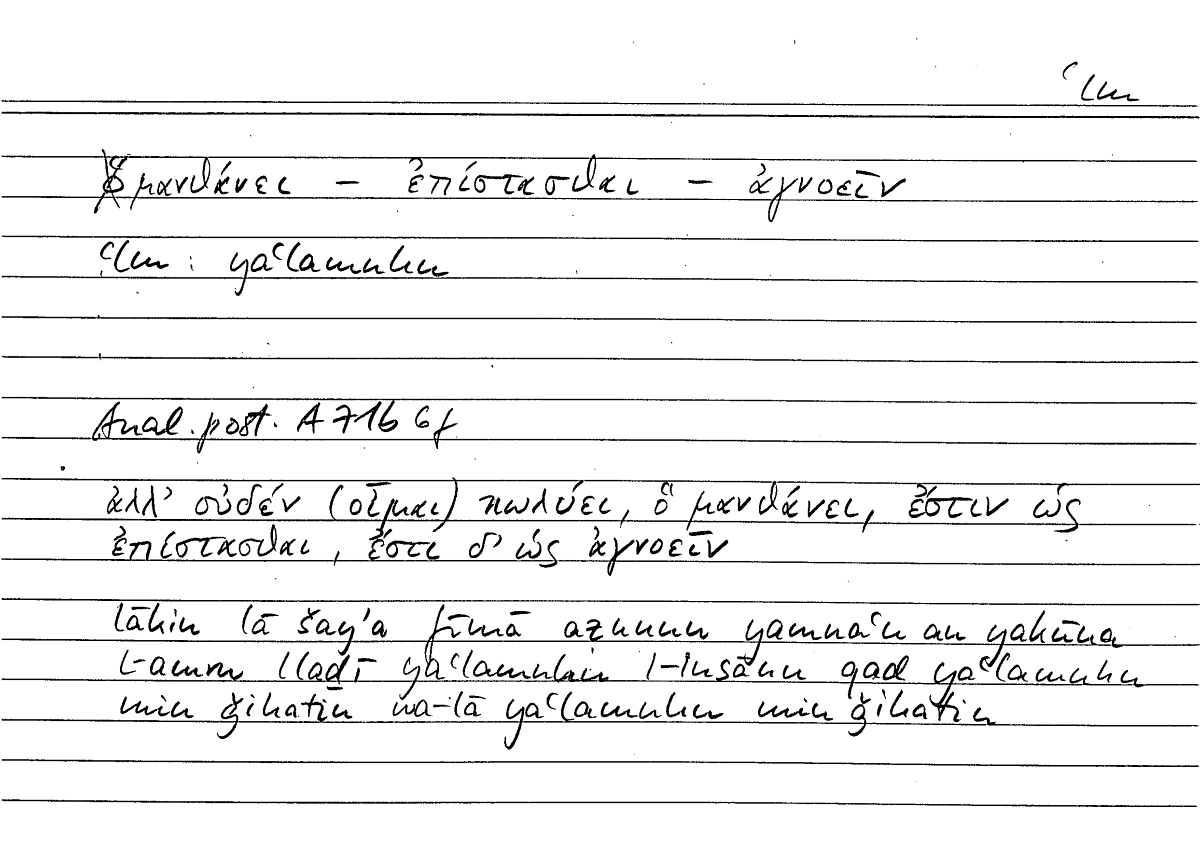 ʿlm
μανθάνει – ἐπίστασθαι – ἀγνοεῖν
ʿlm : yaʿlamuhu
Anal. post. A 71b 6f
ἀλλ’ οὐδέν (οἶμαι) κωλύει, ὃ μανθάνει, ἔστιν ὡς
ἐπίστασθαι, ἔστι δ’ ὡς ἀγνοεῖν
lākin lā šayʾa fīmā aẓunnu yamnaʿu an yakūna
l-amru lladī yaʿlamuhu l-insānu qad yaʿlamuhu
min ǧihatin wa-lā yaʿlamuhu min ǧihatin